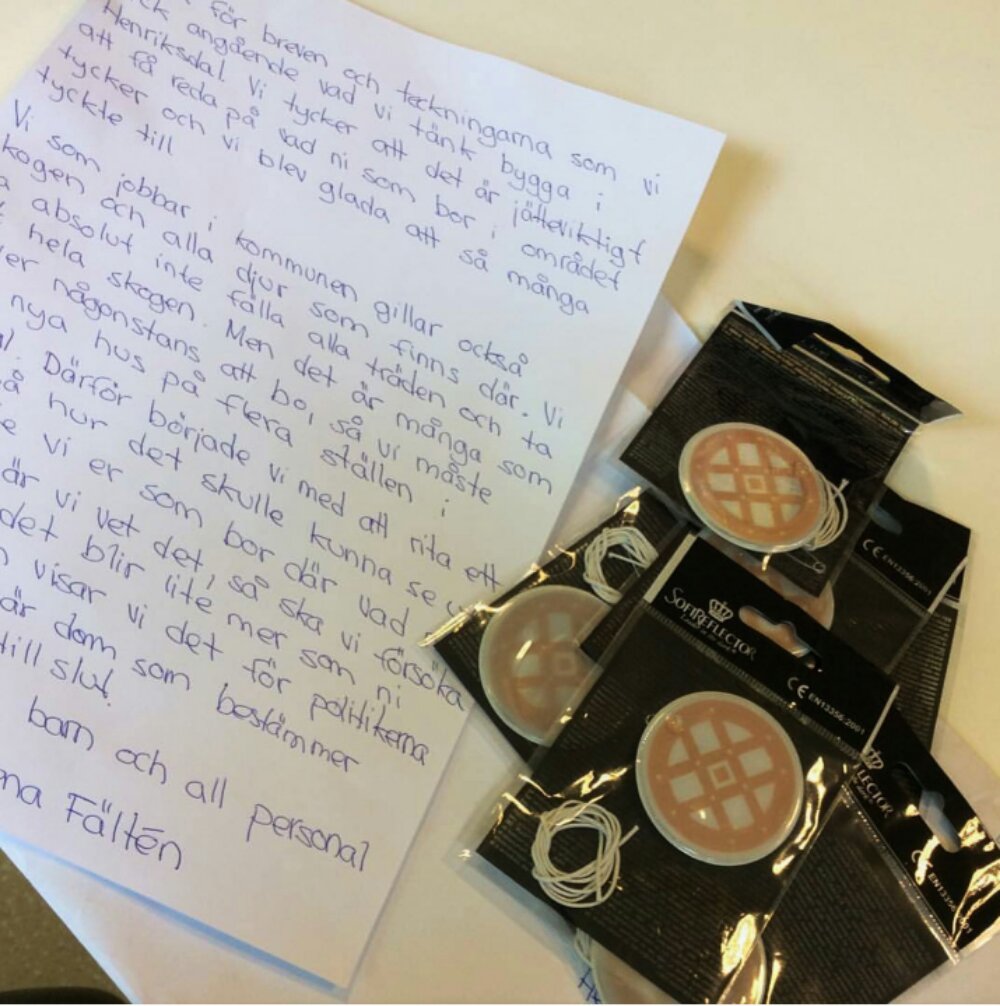 för breven och teckningarna som vi
ck angående vad vi tänk bygga i
Henriksdal Vi tycker att det är jätteviktigt
att få reda på vad ni som bor i området
tycker och vi blev glada att så många
tyckte till
Vi som jobbar i kommunen gillar också
kogen och alla djur som finns där. Vi
absolut inte fälla alla träden och ta
hela skogen. Men det är många som
er någonstans att bo, så vi måste
nya hus på flera ställen i
l. Därför började vi med att rita ett
å hur det skulle kunna se
e vi er som bor där vad
är vi vet det, så ska vi försöka
det blir lite mer som ni
n visar vi det för politikerna
är dom som bestämmer
till slut.
barn och all personal
na Fältén
CE EN13356:2001
SOFIREFLECTOR
CE EN13356:2001
LECTOR
CE EN13356:2001